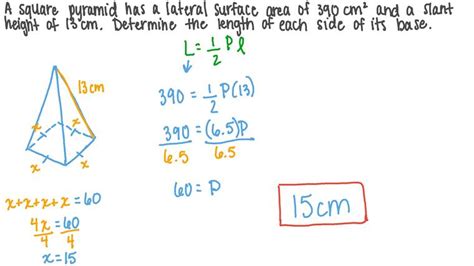 A square pyramid has a lateral surface area of 390 cm² and a slant
height of 13 cm. Determine the length of each side of its base.
L = 1/2 P l
13 cm
x
x
x
x
390 = 1/2 P(13)
390 = (6.5)P
6.5 6.5
60 = P
x+x+x+x=60
4x = 60
4 4
x=15
15 cm